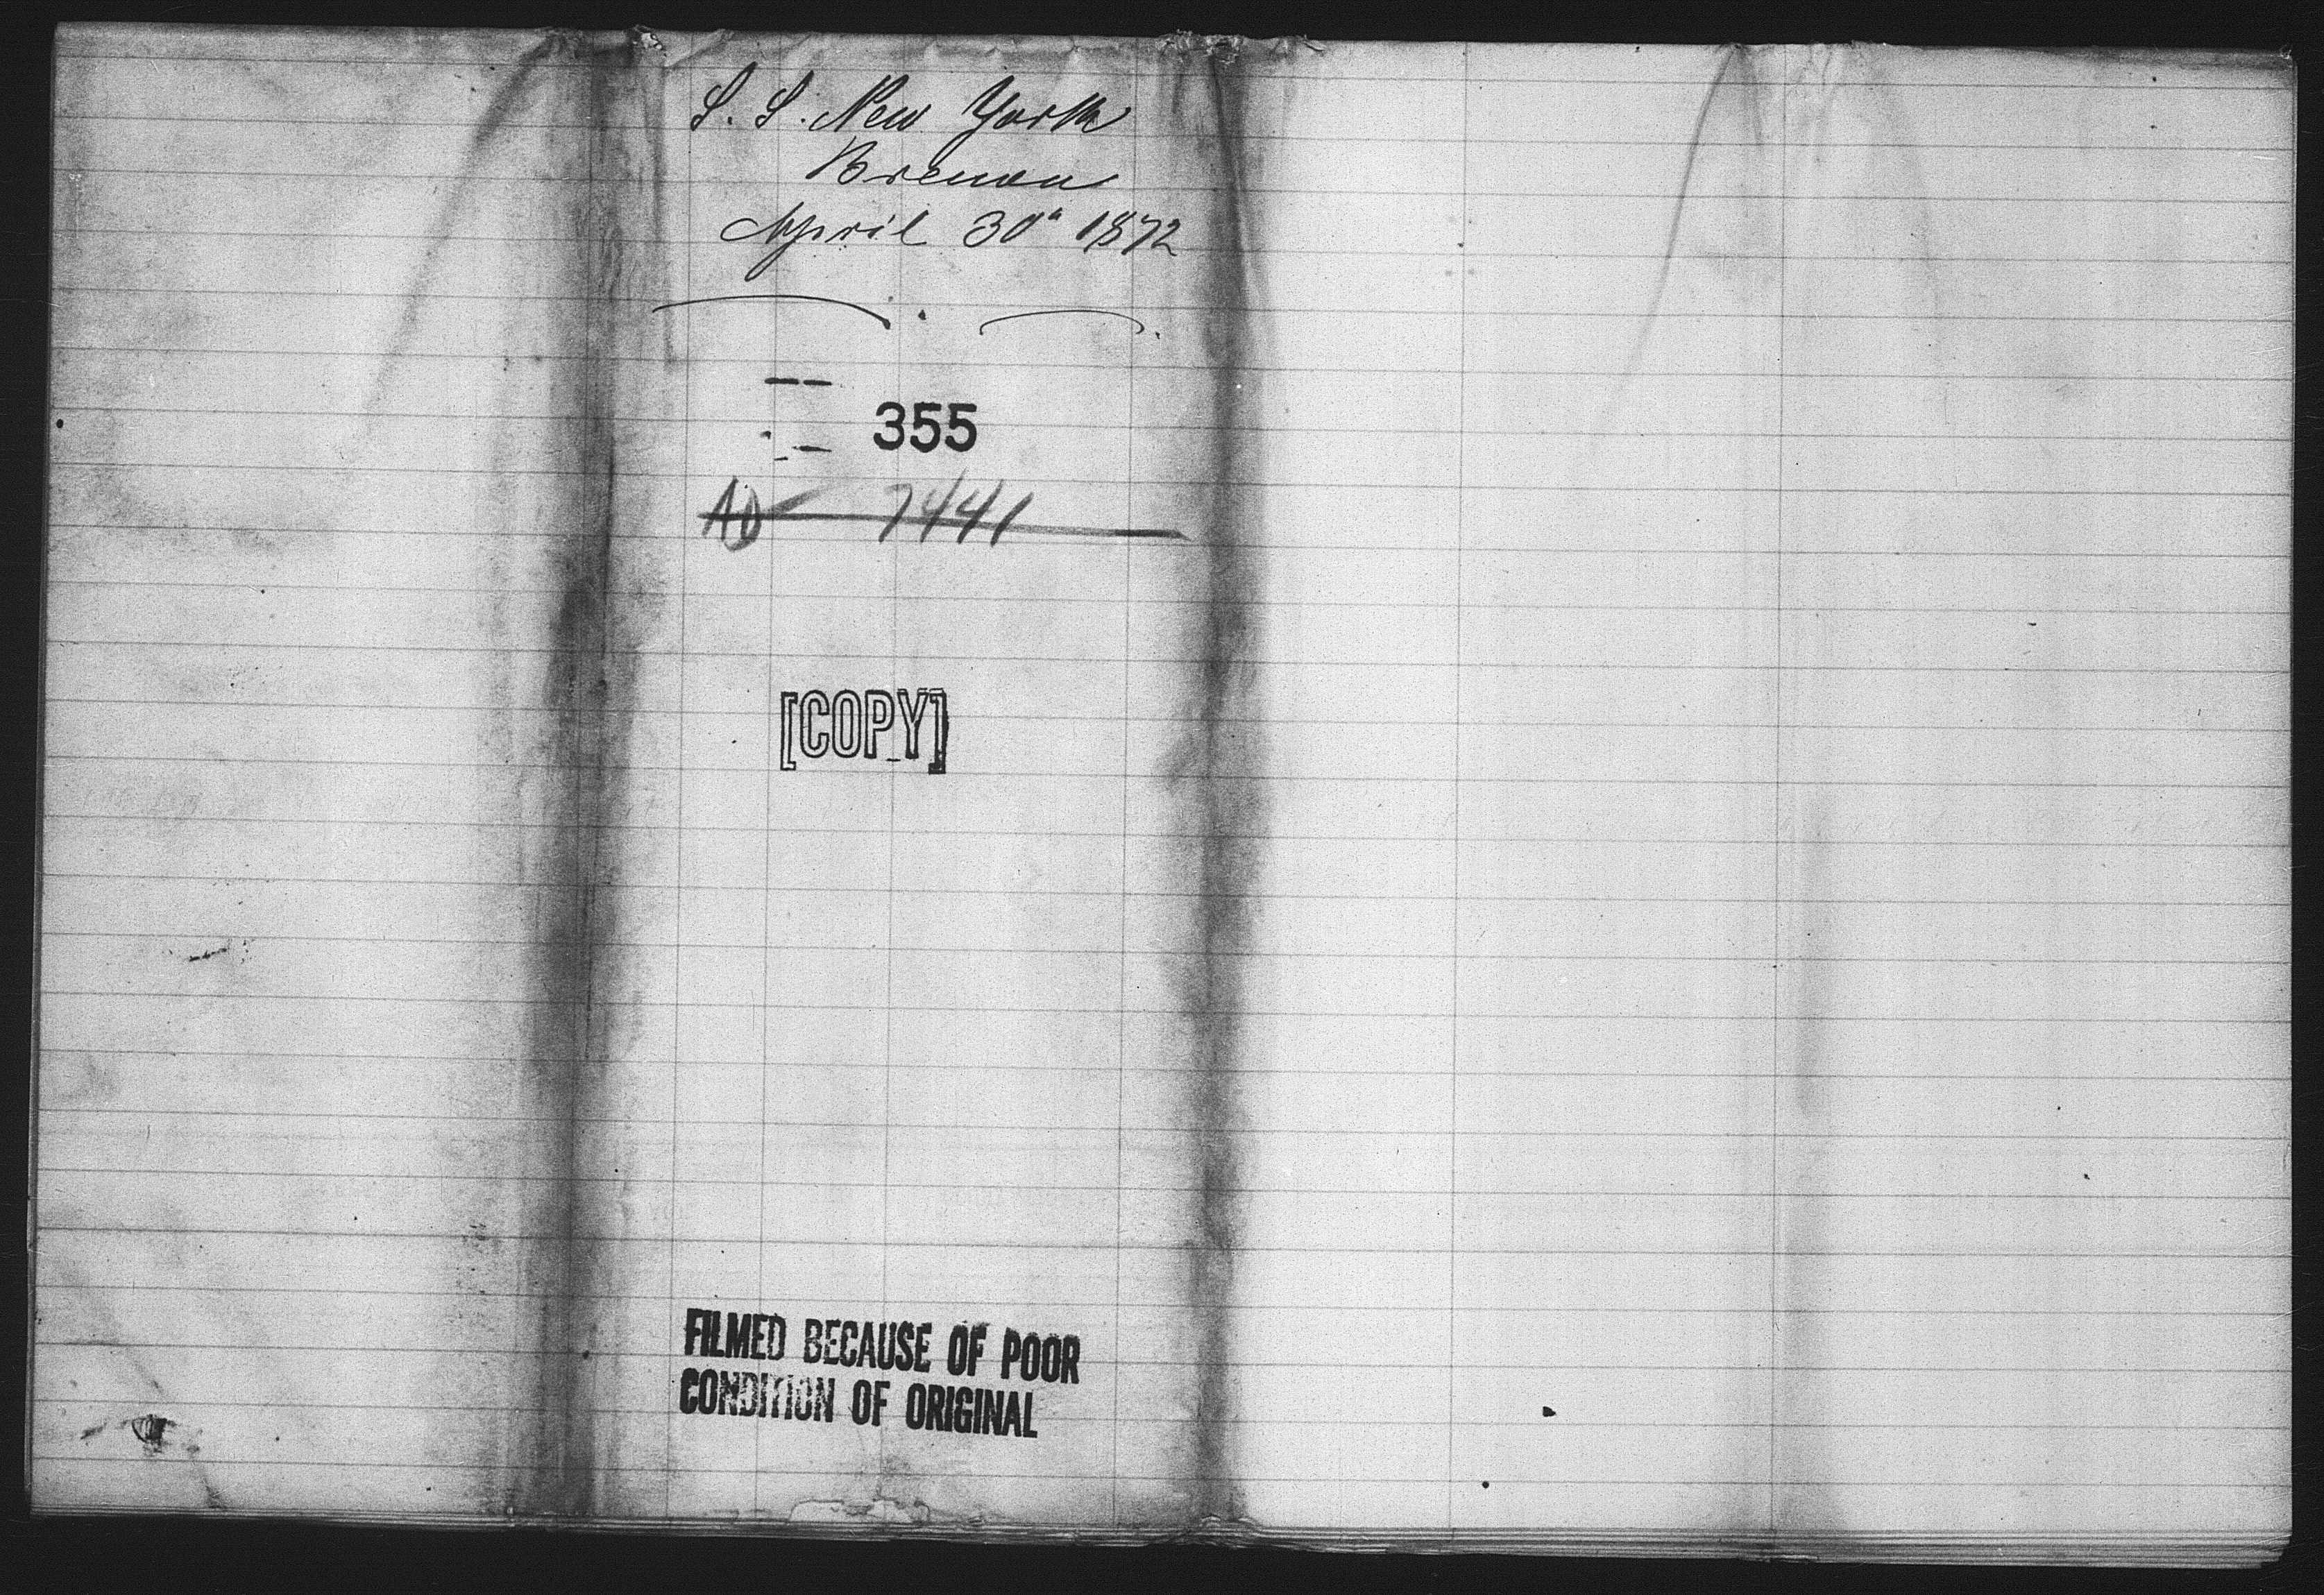 S. S. New York
Bremen
April 30" 1872
355
7441
[COPY]
FILMED BECAUSE OF POOR
CONDITION OF ORIGINAL